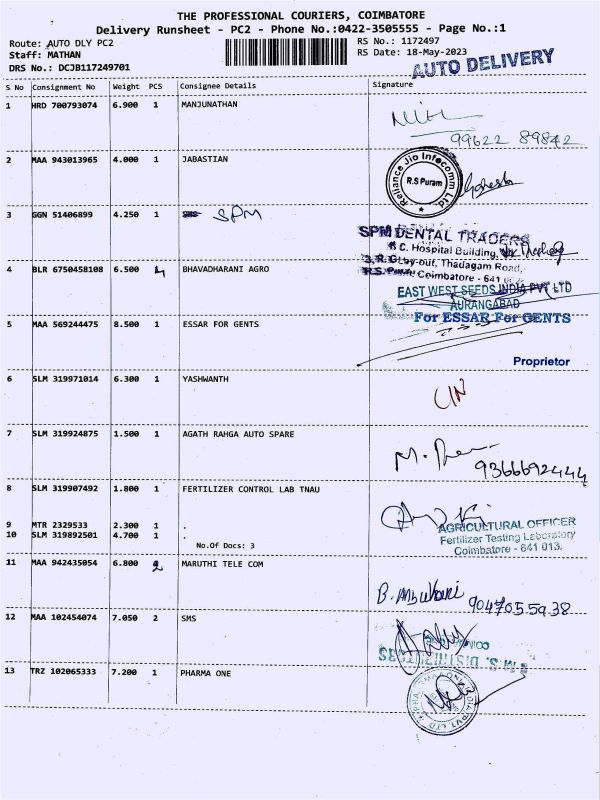 THE PROFESSIONAL COURIERS, COIMBATORE
Delivery Runsheet - PC2 - Phone No.:0422-3505555 - Page No.:1
Route: AUTO DLY PC2
Staff: MATHAN
DRS No.: DCJB117249701
RS No.: 1172497
RS Date: 18-May-2023
AUTO DELIVERY
S No Consignment No Weight PCS Consignee Details Signature
1 HRD 700793074 6.900 1 MANJUNATHAN
99622 89842
2 MAA 943013965 4.000 1 JABASTIAN
Reliance Jio Infocomm Ltd.
R.S Puram
3 GGN 51406899 4.250 1 SPM
SPM DENTAL TRADERS
C. Hospital Building,
Lay-out, Thadagam Road,
Coimbatore - 641
4 BLR 6750458108 6.500 BHAVADHARANI AGRO
EAST WEST SEEDS INDIA PVT LTD
AURANGABAD
5 MAA 569244475 8.500 1 ESSAR FOR GENTS
For ESSAR For GENTS
Proprietor
6 SLM 319971014 6.300 1 YASHWANTH
7 SLM 319924875 1.500 1 AGATH RAHGA AUTO SPARE
9366692444
8 SLM 319907492 1.800 1 FERTILIZER CONTROL LAB TNAU
9 MTR 2329533 2.300 1 .
10 SLM 319892501 4.700 1 .
No.Of Docs: 3
AGRICULTURAL OFFICER
Fertilizer Testing Laboratory
Coimbatore - 641 013.
11 MAA 942435054 6.800 2 MARUTHI TELE COM
9047055938
12 MAA 102454074 7.050 2 SMS
13 TRZ 102065333 7.200 1 PHARMA ONE